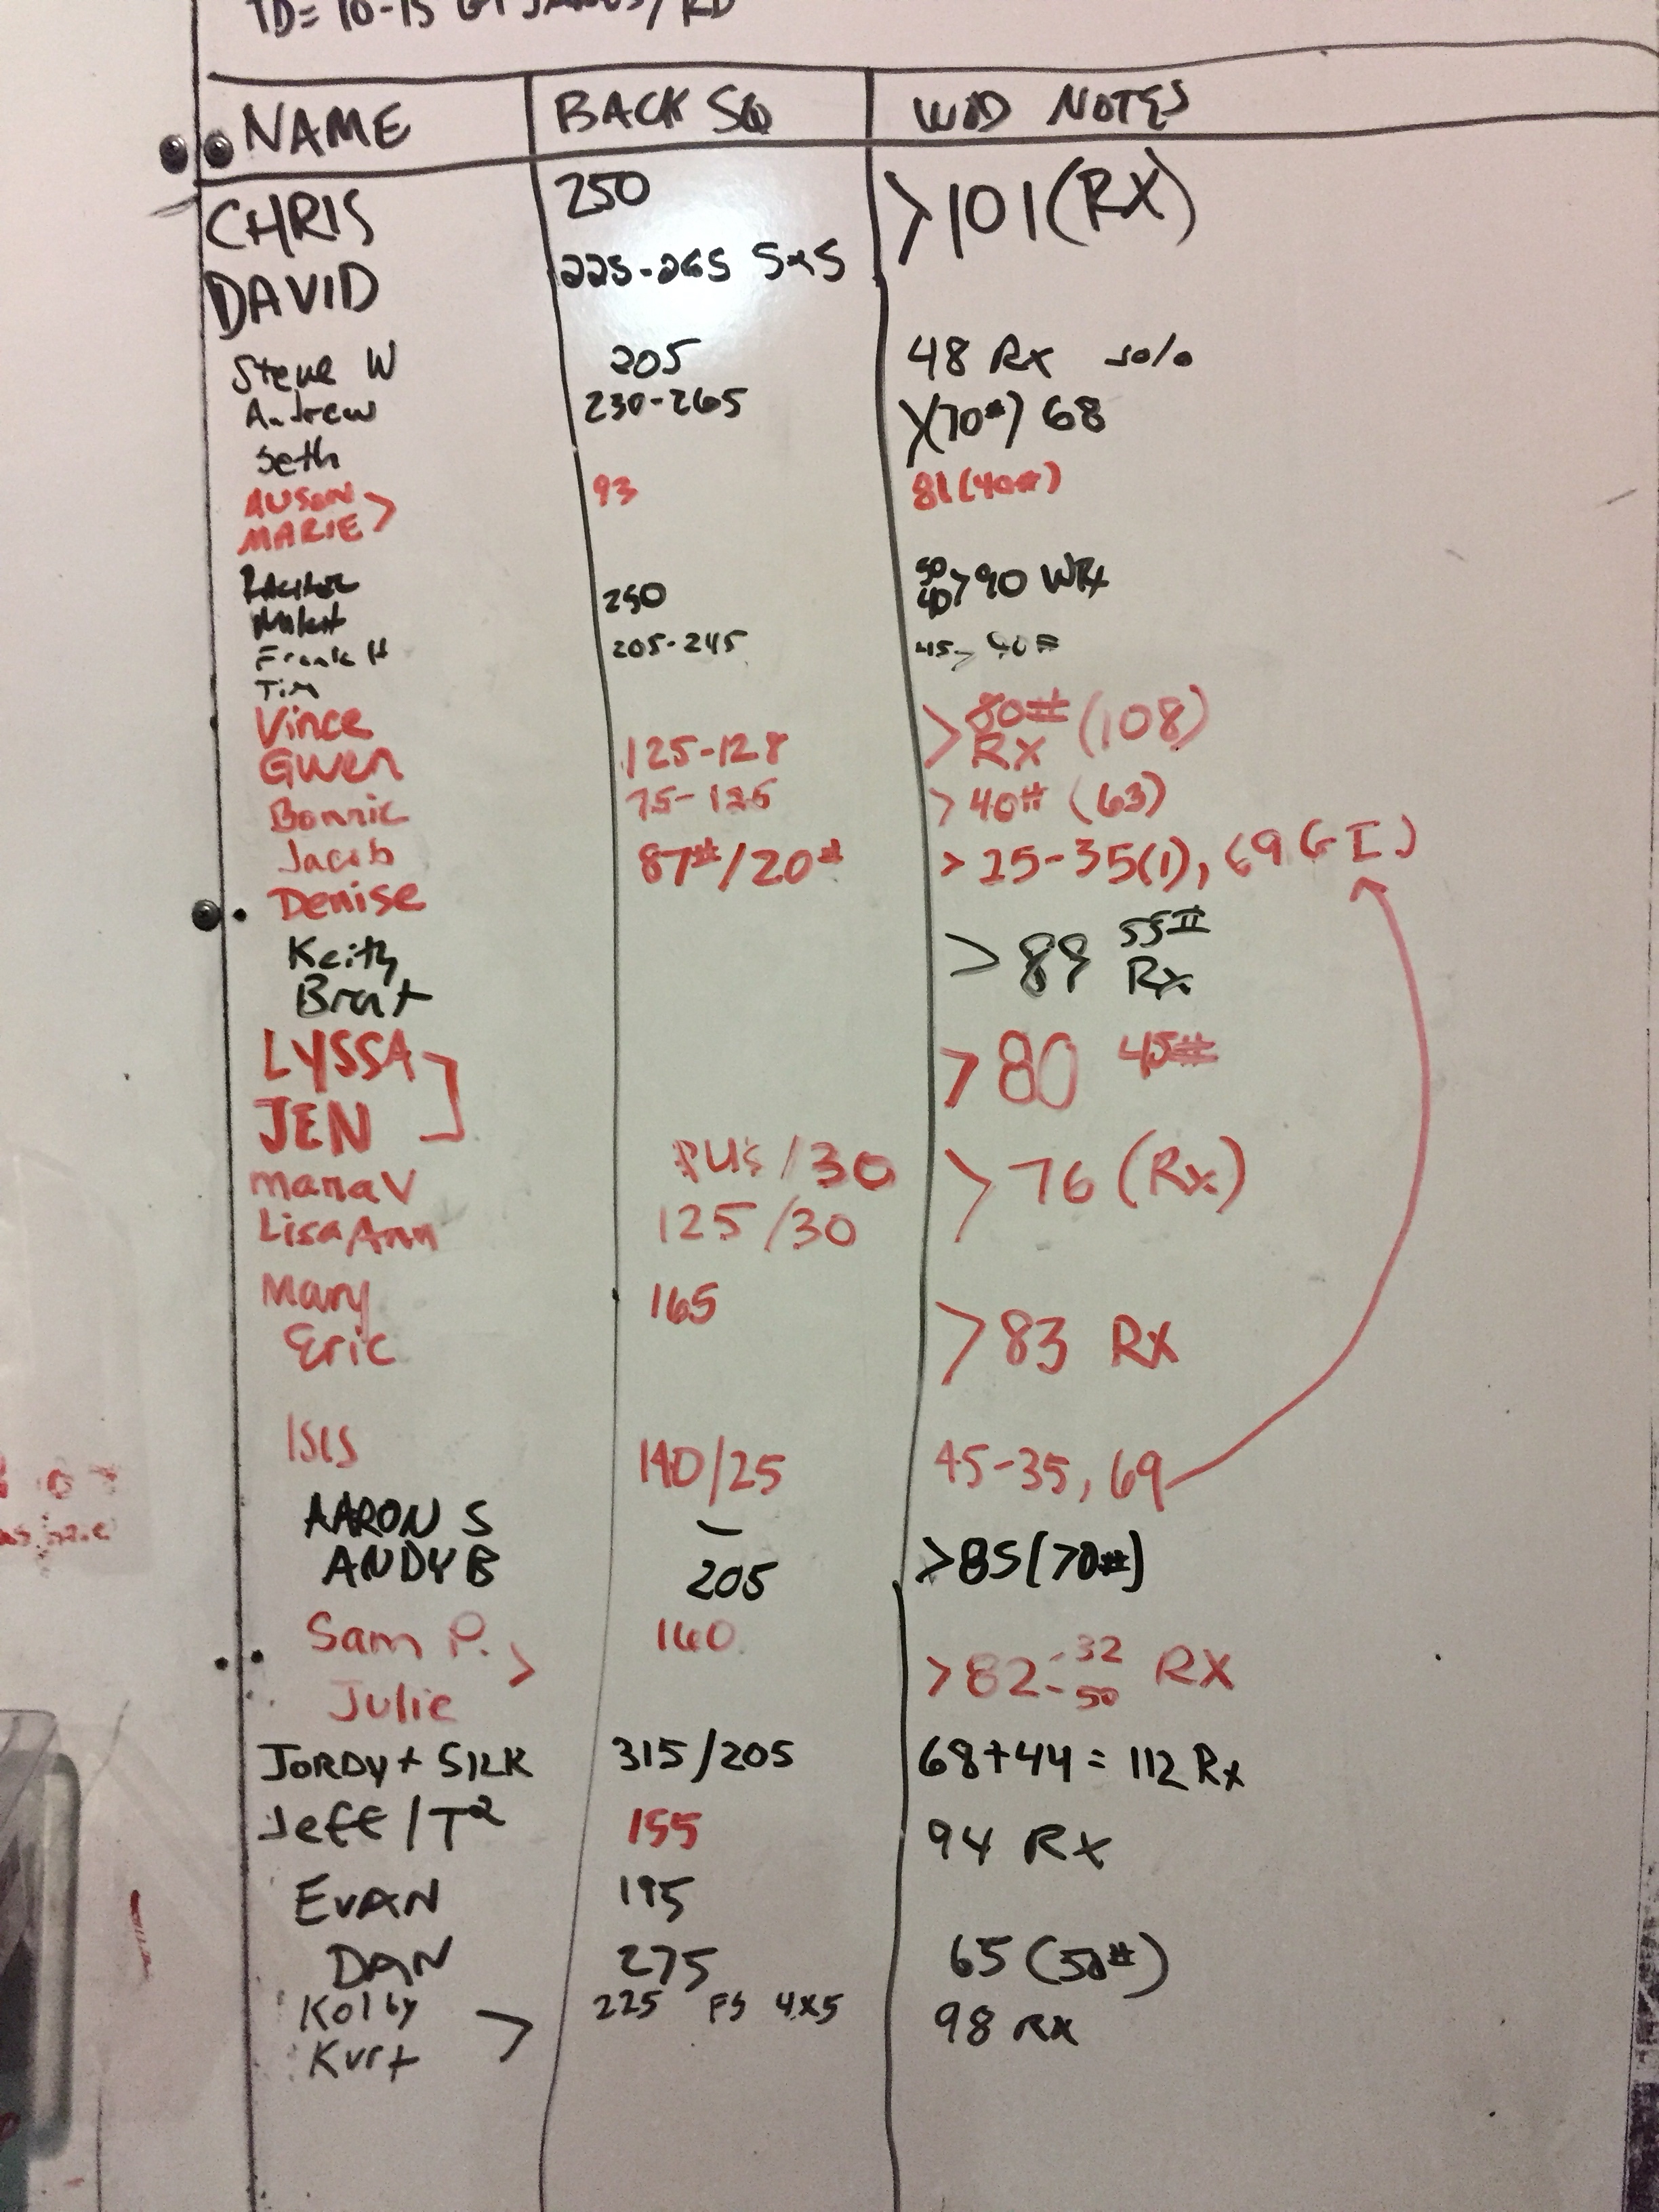 NAME BACK SQ WOD NOTES
CHRIS 250 >101 (RX)
DAVID 225-265 5x5
Steve W 205 48 RX solo
Andrew 230-265 >(70#) 68
Seth
ALISON 93 81 (40#)
MARIE >
50
250 40 >90 WRX
Frank H 205-245 45> 40#
Tim
Vince >80# (108)
Gwen 125-128 RX
Bonnie 75-125 >40# (63)
Jacob 87#/20# >25-35(1), 69 (I)
Denise
Keith >89 55#
Brat Rx
LYSSA >80 45#
JEN
Maria V /30 >76 (Rx)
Lisa Ann 125/30
Mary 165 >83 RX
Eric
ISIS 140/25 45-35, 69
AARON S –
ANDY B 205 >85 (70#)
Sam P. > 140 >82 -32 RX
Julie -50
JORDY + SILK 315/205 68+44=112 Rx
Jeff/T² 155 94 RX
EVAN 195
DAN 275 65 (50#)
Kolby > 225 FS 4x5 98 RX
Kurt